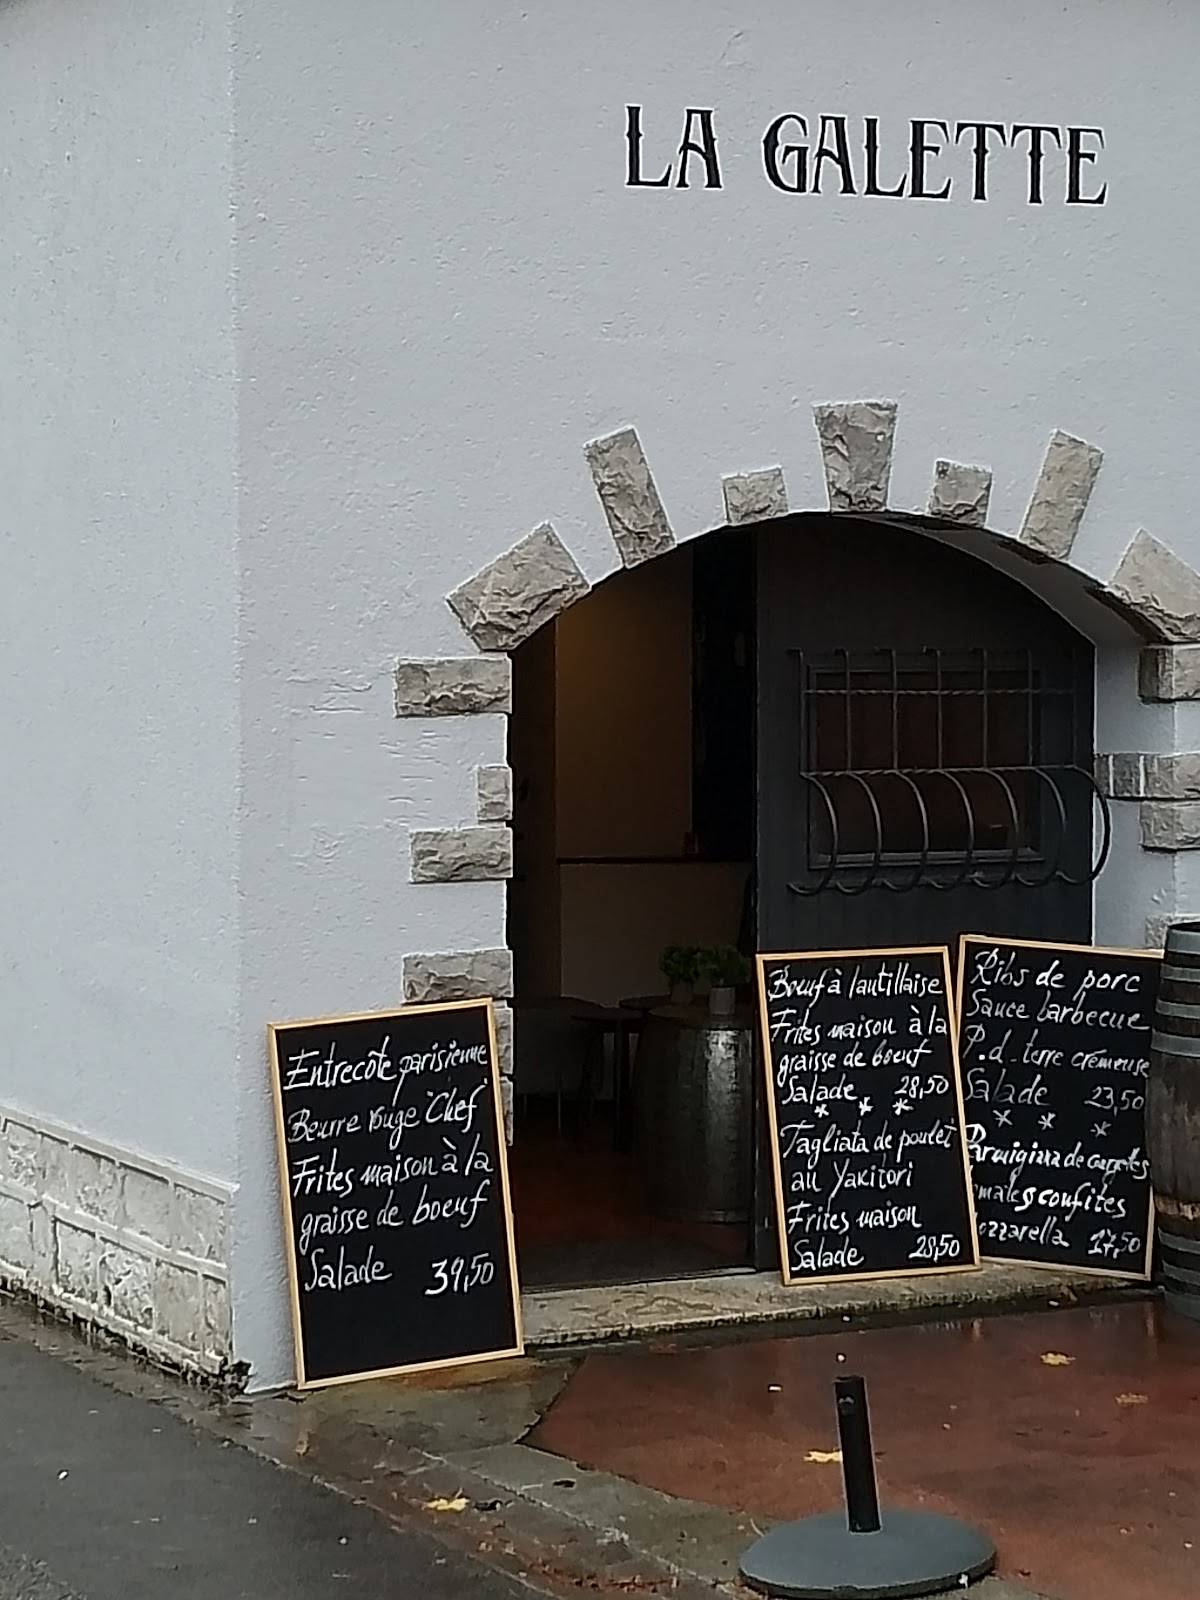 LA GALETTE
Entrecôte parisienne
Beurre rouge Chef
Frites maison à la
graisse de boeuf
Salade 39,50
Boeuf à lautillaise
Frites maison à la
graisse de boeuf
Salade 28,50
* * *
Tagliata de poulet
au Yakitori
Frites maison
Salade 28,50
Ribs de porc
Sauce barbecue
P.d.terre crémeuse
Salade 23,50
* * *
Parmigiana de courgettes
confites
17,50